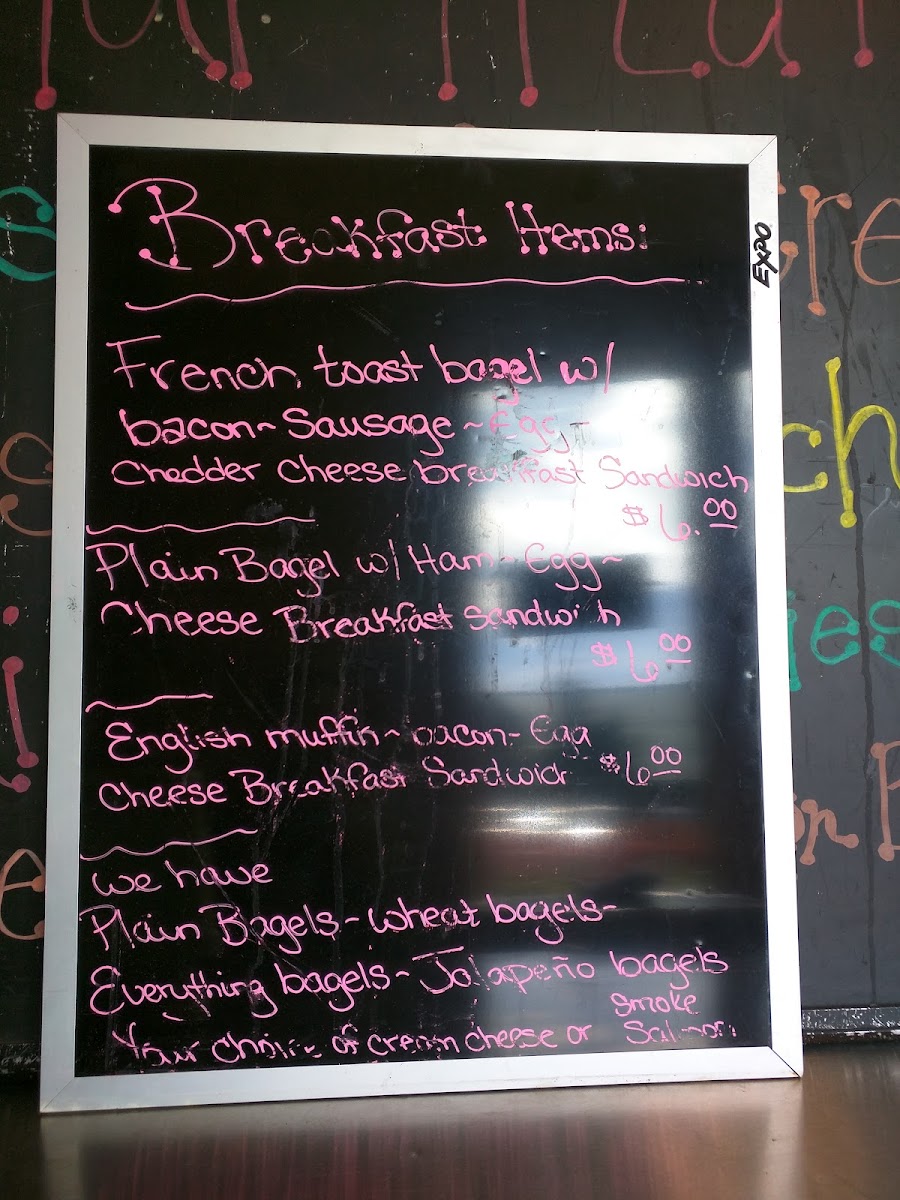 Breakfast Items:
EXPO
French toast bagel w/
bacon~ Sausage ~ Egg -
Chedder Cheese breakfast Sandwich
$6.00
Plain Bagel w/ Ham ~ Egg ~
Cheese Breakfast Sandwich
$6.00
English muffin ~ bacon - Egg
Cheese Breakfast Sandwich $6.00
we have
Plain Bagels - wheat bagels -
Everything bagels - Jalapeño bagels
Smoke
Your choice of cream cheese or Salmon